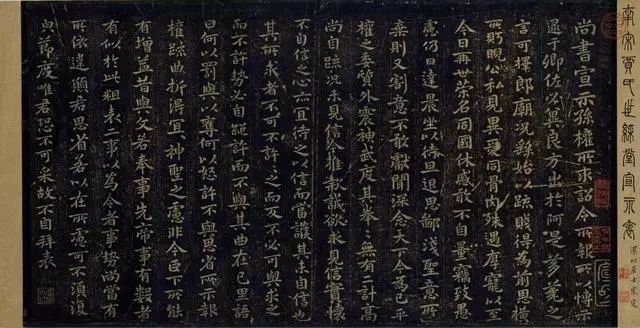 南宋賈氏世綵堂宣示表
尚書宣示孫權所求詔令所報所以博示
逮于卿佐必冀良方出於阿是芻蕘之
言可擇郎廟況繇始以疏賤得為前恩橫
所盱睨公私見異愛同骨肉殊遇厚寵以至
今日再世榮名同國休慼敢不自量竊致愚
慮仍日達晨坐以待旦退思鄙淺聖意所
棄則又割意不敢獻聞深念天下今為已平
權之委質外震神武度其拳拳無有二計高
尚自疏況未見信今推款誠欲求見信實懷
不自信之心亦宜待之以信而當護其未自信也
其所求者不可不許許之而反不必可與求之
而不許勢必自絕許而不與其曲在己里語
曰何以罰與以奪何以怒許不與思省所示報
權疏曲折得宜宜神聖之慮非今臣下所能
有增益昔與文若奉事先帝事有數者
有似於此粗表二事以為今者事勢尚當有
所依違願君思省若以在所慮可不須復
貌節度唯君恐不可采故不自拜表